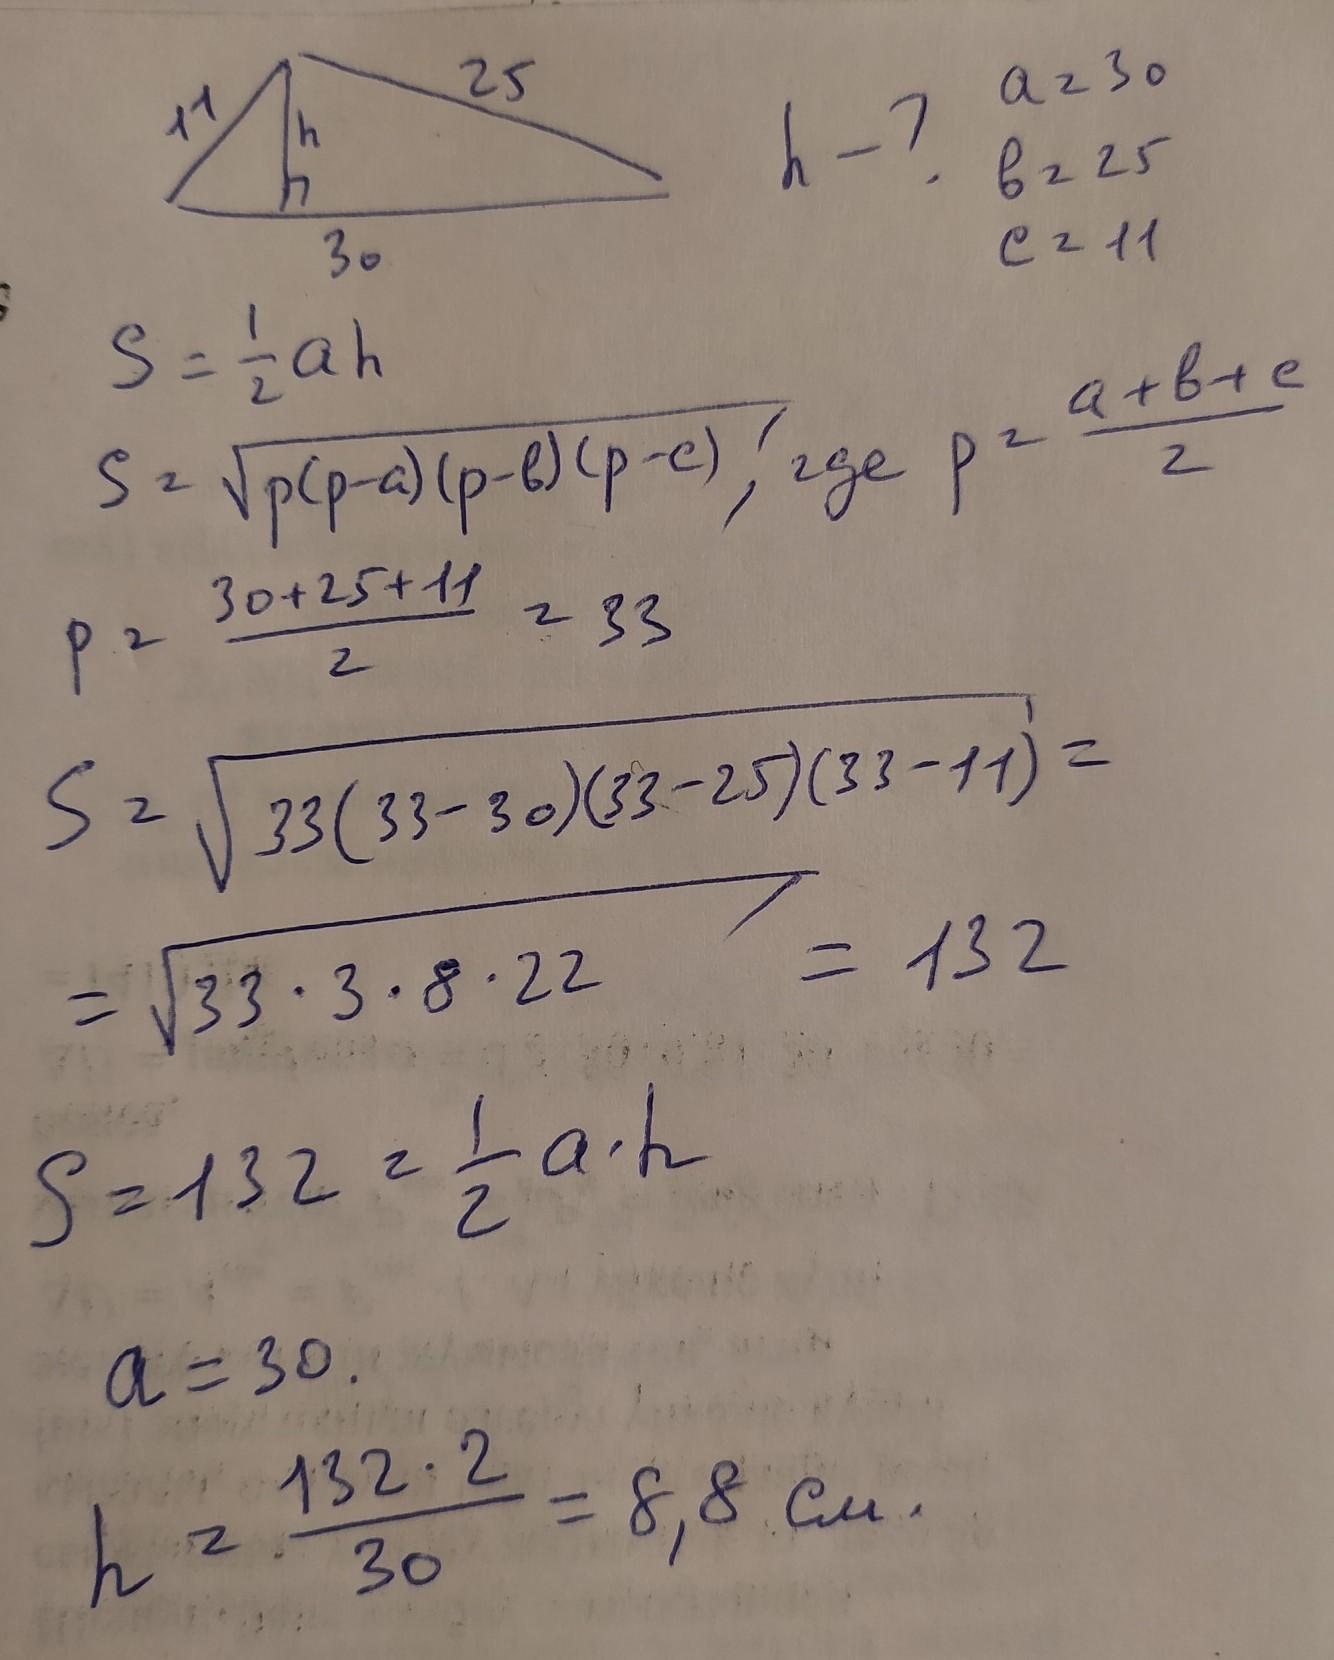 11 25 h h - ? a = 30
30 b = 25
c = 11
S = 1/2 a h
S = √p(p-a)(p-b)(p-c), где p = (a+b+c)/2
p = (30+25+11)/2 = 33
S = √33(33-30)(33-25)(33-11) =
= √33 · 3 · 8 · 22 = 132
S = 132 = 1/2 a · h
a = 30.
h = (132 · 2)/30 = 8,8 см.